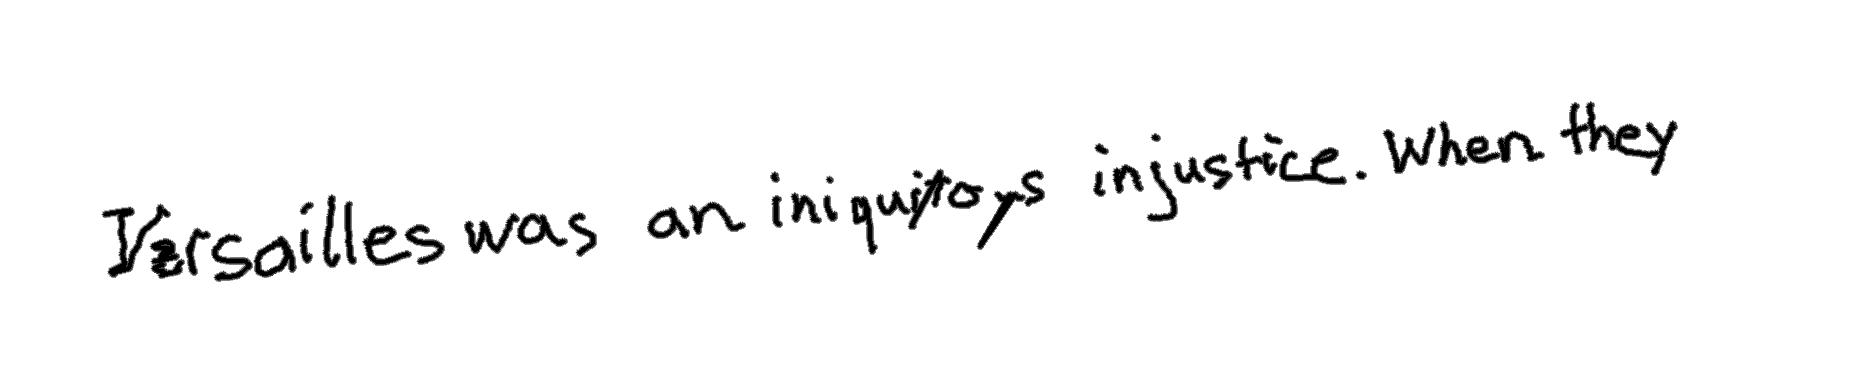 Versailles was an iniquitoys injustice. When they